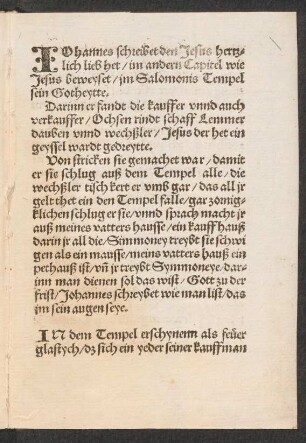 JOhannes schreibet den Jesus hertz⸗
lich lieb het / im andern Capitel wie
Jesus beweyset / jm Salomonis Tempel
sein Gotheytte.
Darinn er fandt die kauffer vnnd auch
verkauffer / Ochsen rindt schaff Lemmer
dauben vnnd wechßler / Jesus der het ein
geyssel wardt gedreytte.
Von stricken sie gemachet war / damit
er sie schlug auß dem Tempel alle / die
wechßler tisch kert er vmb gar / das all jr
gelt thet ein den Tempel falle / gar zornig⸗
klichen schlug er sie / vnnd sprach macht jr
auß meines vatters hausse / ein kauff hauß
darin jr all die / Simmoney treybt sie schwi
gen als ein mausse / meins vatters hauß ein
pethauß ist / vñ jr treybt Symmoneye / dar⸗
inn man dienen sol das wist / Gott zu der
frist / Johannes schreybet wie man list / das
im sein augen seye.
IN dem Tempel erschynenn als feüer
glastych / dz sich ein yeder seiner kauffman